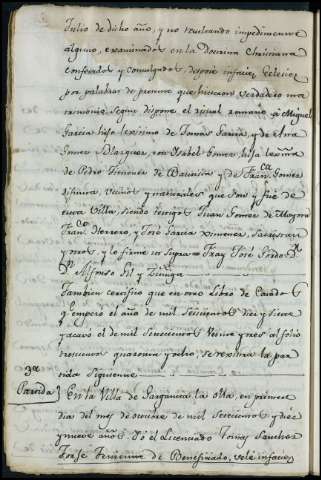 Julio de dicho año, y no resultando impedimento
alguno, examinados en la Doctrina Christiana
confesados y comulgados, despose infacie, eclesie,
por palabras de presente que hicieron verdadero ma
trimonio, segun dispone el ritual romano, a Miguel
Garcia hijo lexitimo de Tomas Garcia, y de Ana
Gomez Marquez, con Ysabel Gomez hija lexitima
de Pedro Ximenez de y de Fran.ca Gomez
difunta, vecinos y naturales que son y fue de
esta Villa, siendo testigos Juan Gomez de
Fran.co Herrero, y José Garcia Ximenez, Sacristan
y otros, y lo firme ut supra = Fray José Pardo = D.r
D.n Alfonso Gil y Zuñiga
Tambien certifico que en otro Libro de
q.e empezo el año de mil Setecientos diez y siete
y acavó el de mil Setecientos Veinte y tres al folio
trescientos quarenta y ocho, se rexistra la par
tida siguiente
3.a
Partida } En la Villa de Garganta la olla, en primero
dia del mes de octubre de mil Setecientos y diez
y nueve años. Yó el Licenciado Tomas Sanchez
Beneficiado, velé infacie,